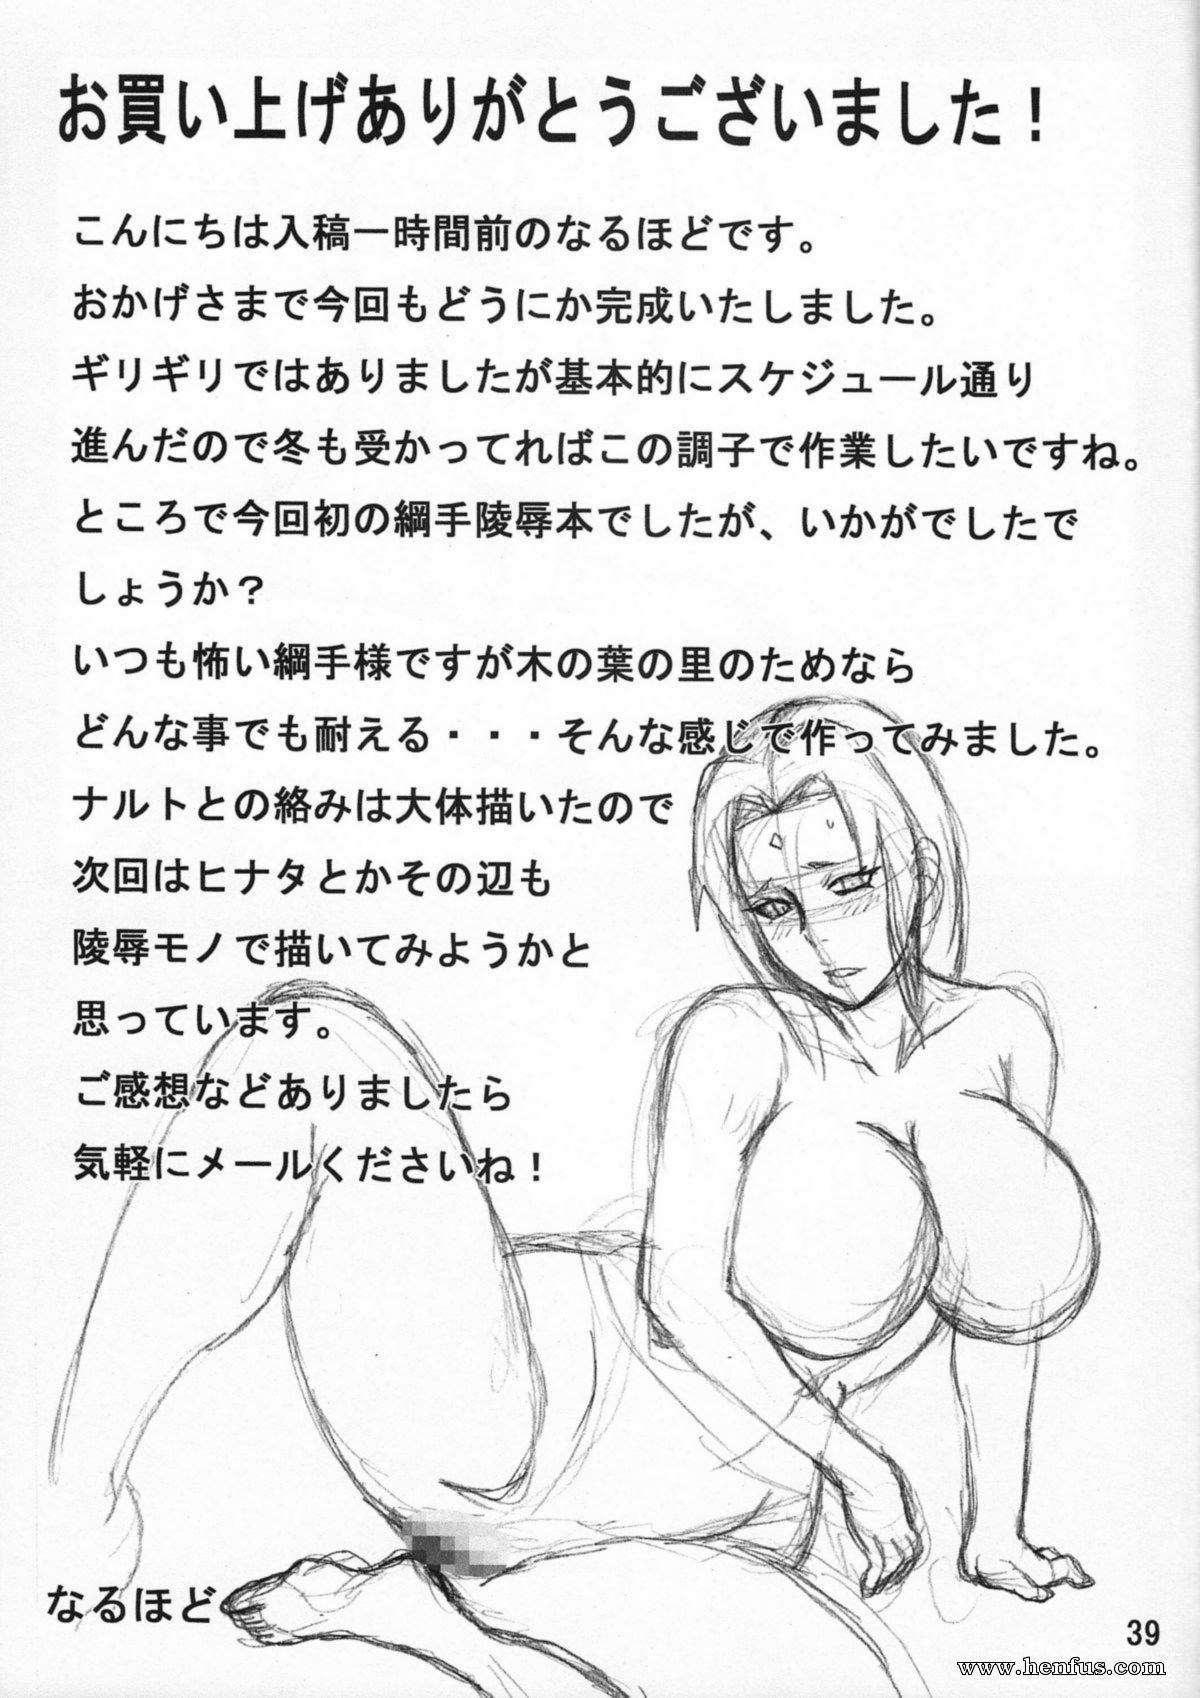 お買い上げありがとうございました！
こんにちは入稿一時間前のなるほどです。
おかげさまで今回もどうにか完成いたしました。
ギリギリではありましたが基本的にスケジュール通り
進んだので冬も受かってればこの調子で作業したいですね。
ところで今回初の綱手陵辱本でしたが、いかがでしたで
しょうか？
いつも怖い綱手様ですが木の葉の里のためなら
どんな事でも耐える・・・そんな感じで作ってみました。
ナルトとの絡みは大体描いたので
次回はヒナタとかその辺も
陵辱モノで描いてみようかと
思っています。
ご感想などありましたら
気軽にメールくださいね！
なるほど
39
www.henfus.com